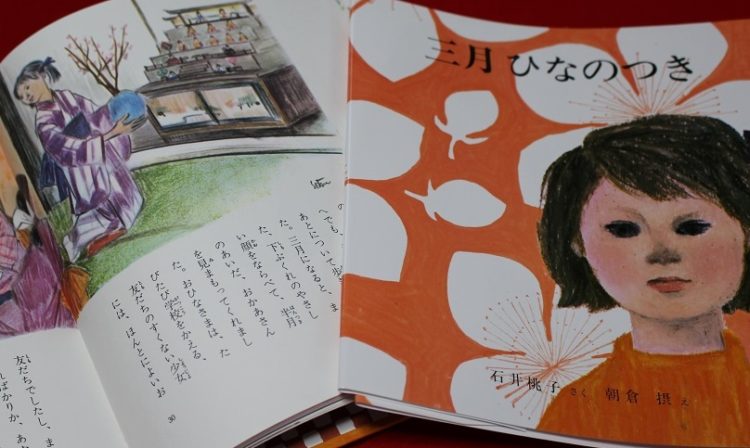 三月 ひなのつき
石井桃子 さく 朝倉 摂 え
の
へでも、
あとについて歩
た。三月になると、ま
た、下ぶくれのやさし
い顔をならべて、半月
のあいだ、おかあさん
を見まもってくれまし
た。おひなさまは、た
びたび学校をかえる、
友だちのすくない少女
には、ほんとによいお
30
友だちでしたし、ま
ればかりか、あ